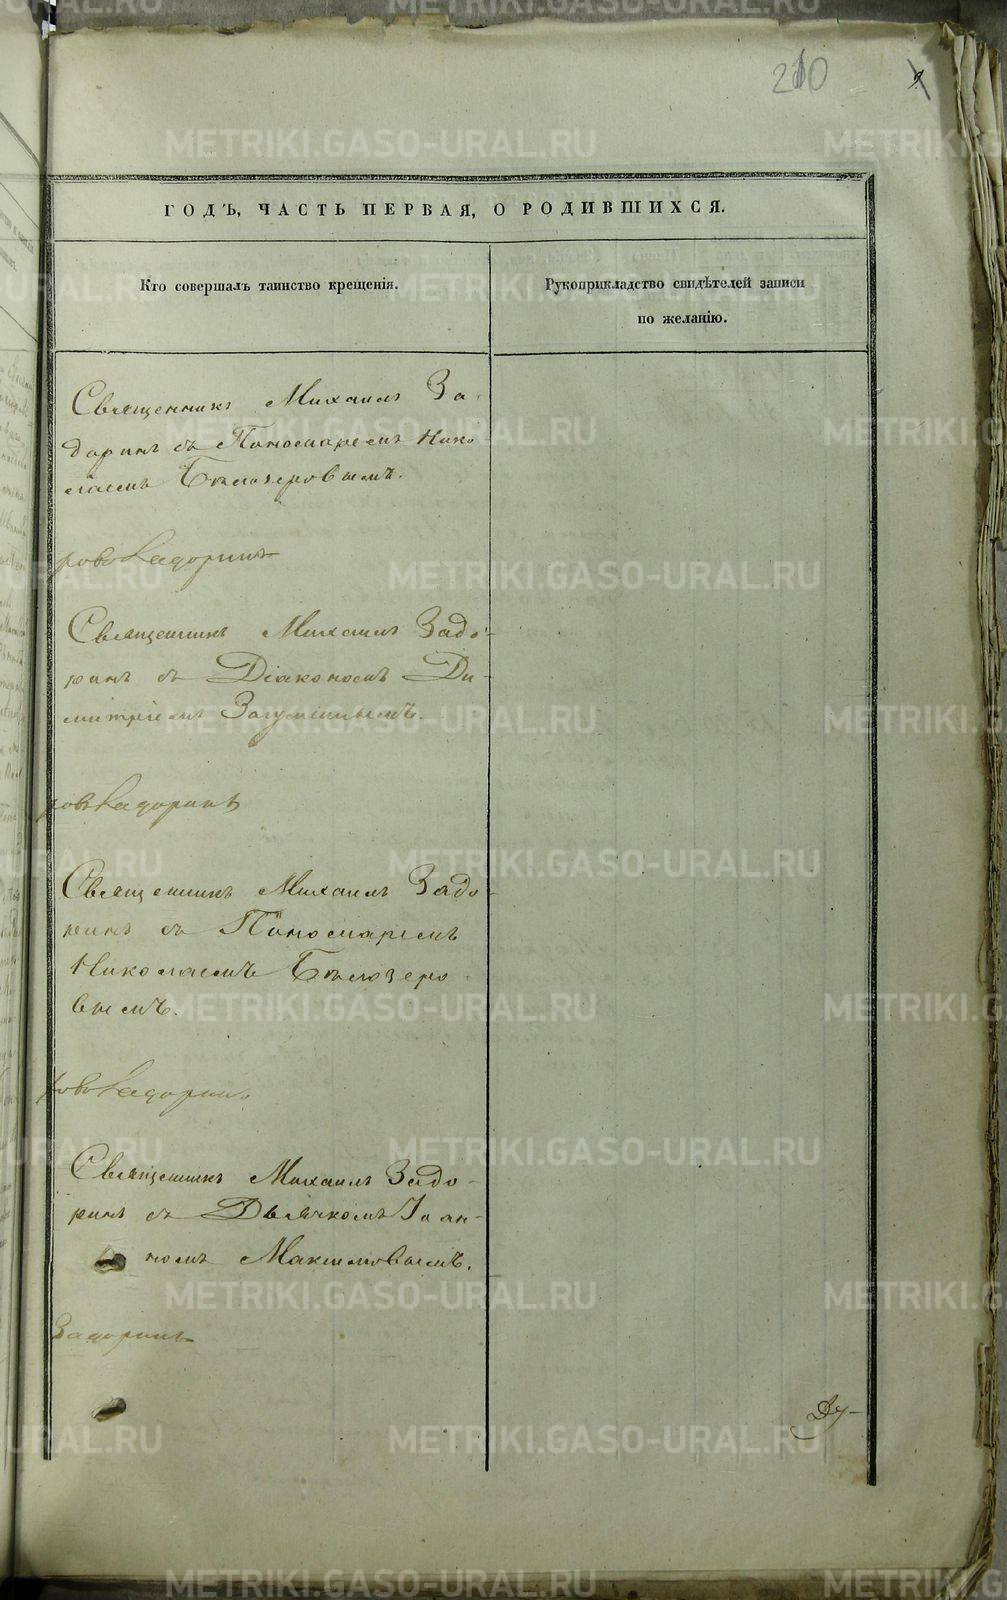 210
ГОДЪ, ЧАСТЬ ПЕРВАЯ, О РОДИВШИХСЯ.
Кто совершалъ таинство крещенія.
Рукоприкладство свидѣтелей записи
по желанію.
Священникъ Михаилъ За-
доринъ съ Пономаремъ Нико-
лаемъ Бѣлозеровымъ.
Задоринъ
Священникъ Михаилъ Задо-
ринъ съ Діакономъ Ди-
митріемъ
Задоринъ
Священникъ Михаилъ Задо-
ринъ съ Пономаремъ
Николаемъ Бѣлозеро
вымъ.
Задоринъ
Священникъ Михаилъ Задо-
ринъ съ Дьячкомъ Іоан-
номъ Максимовымъ.
Задоринъ
Ду-
METRIKI.GASO-URAL.RU